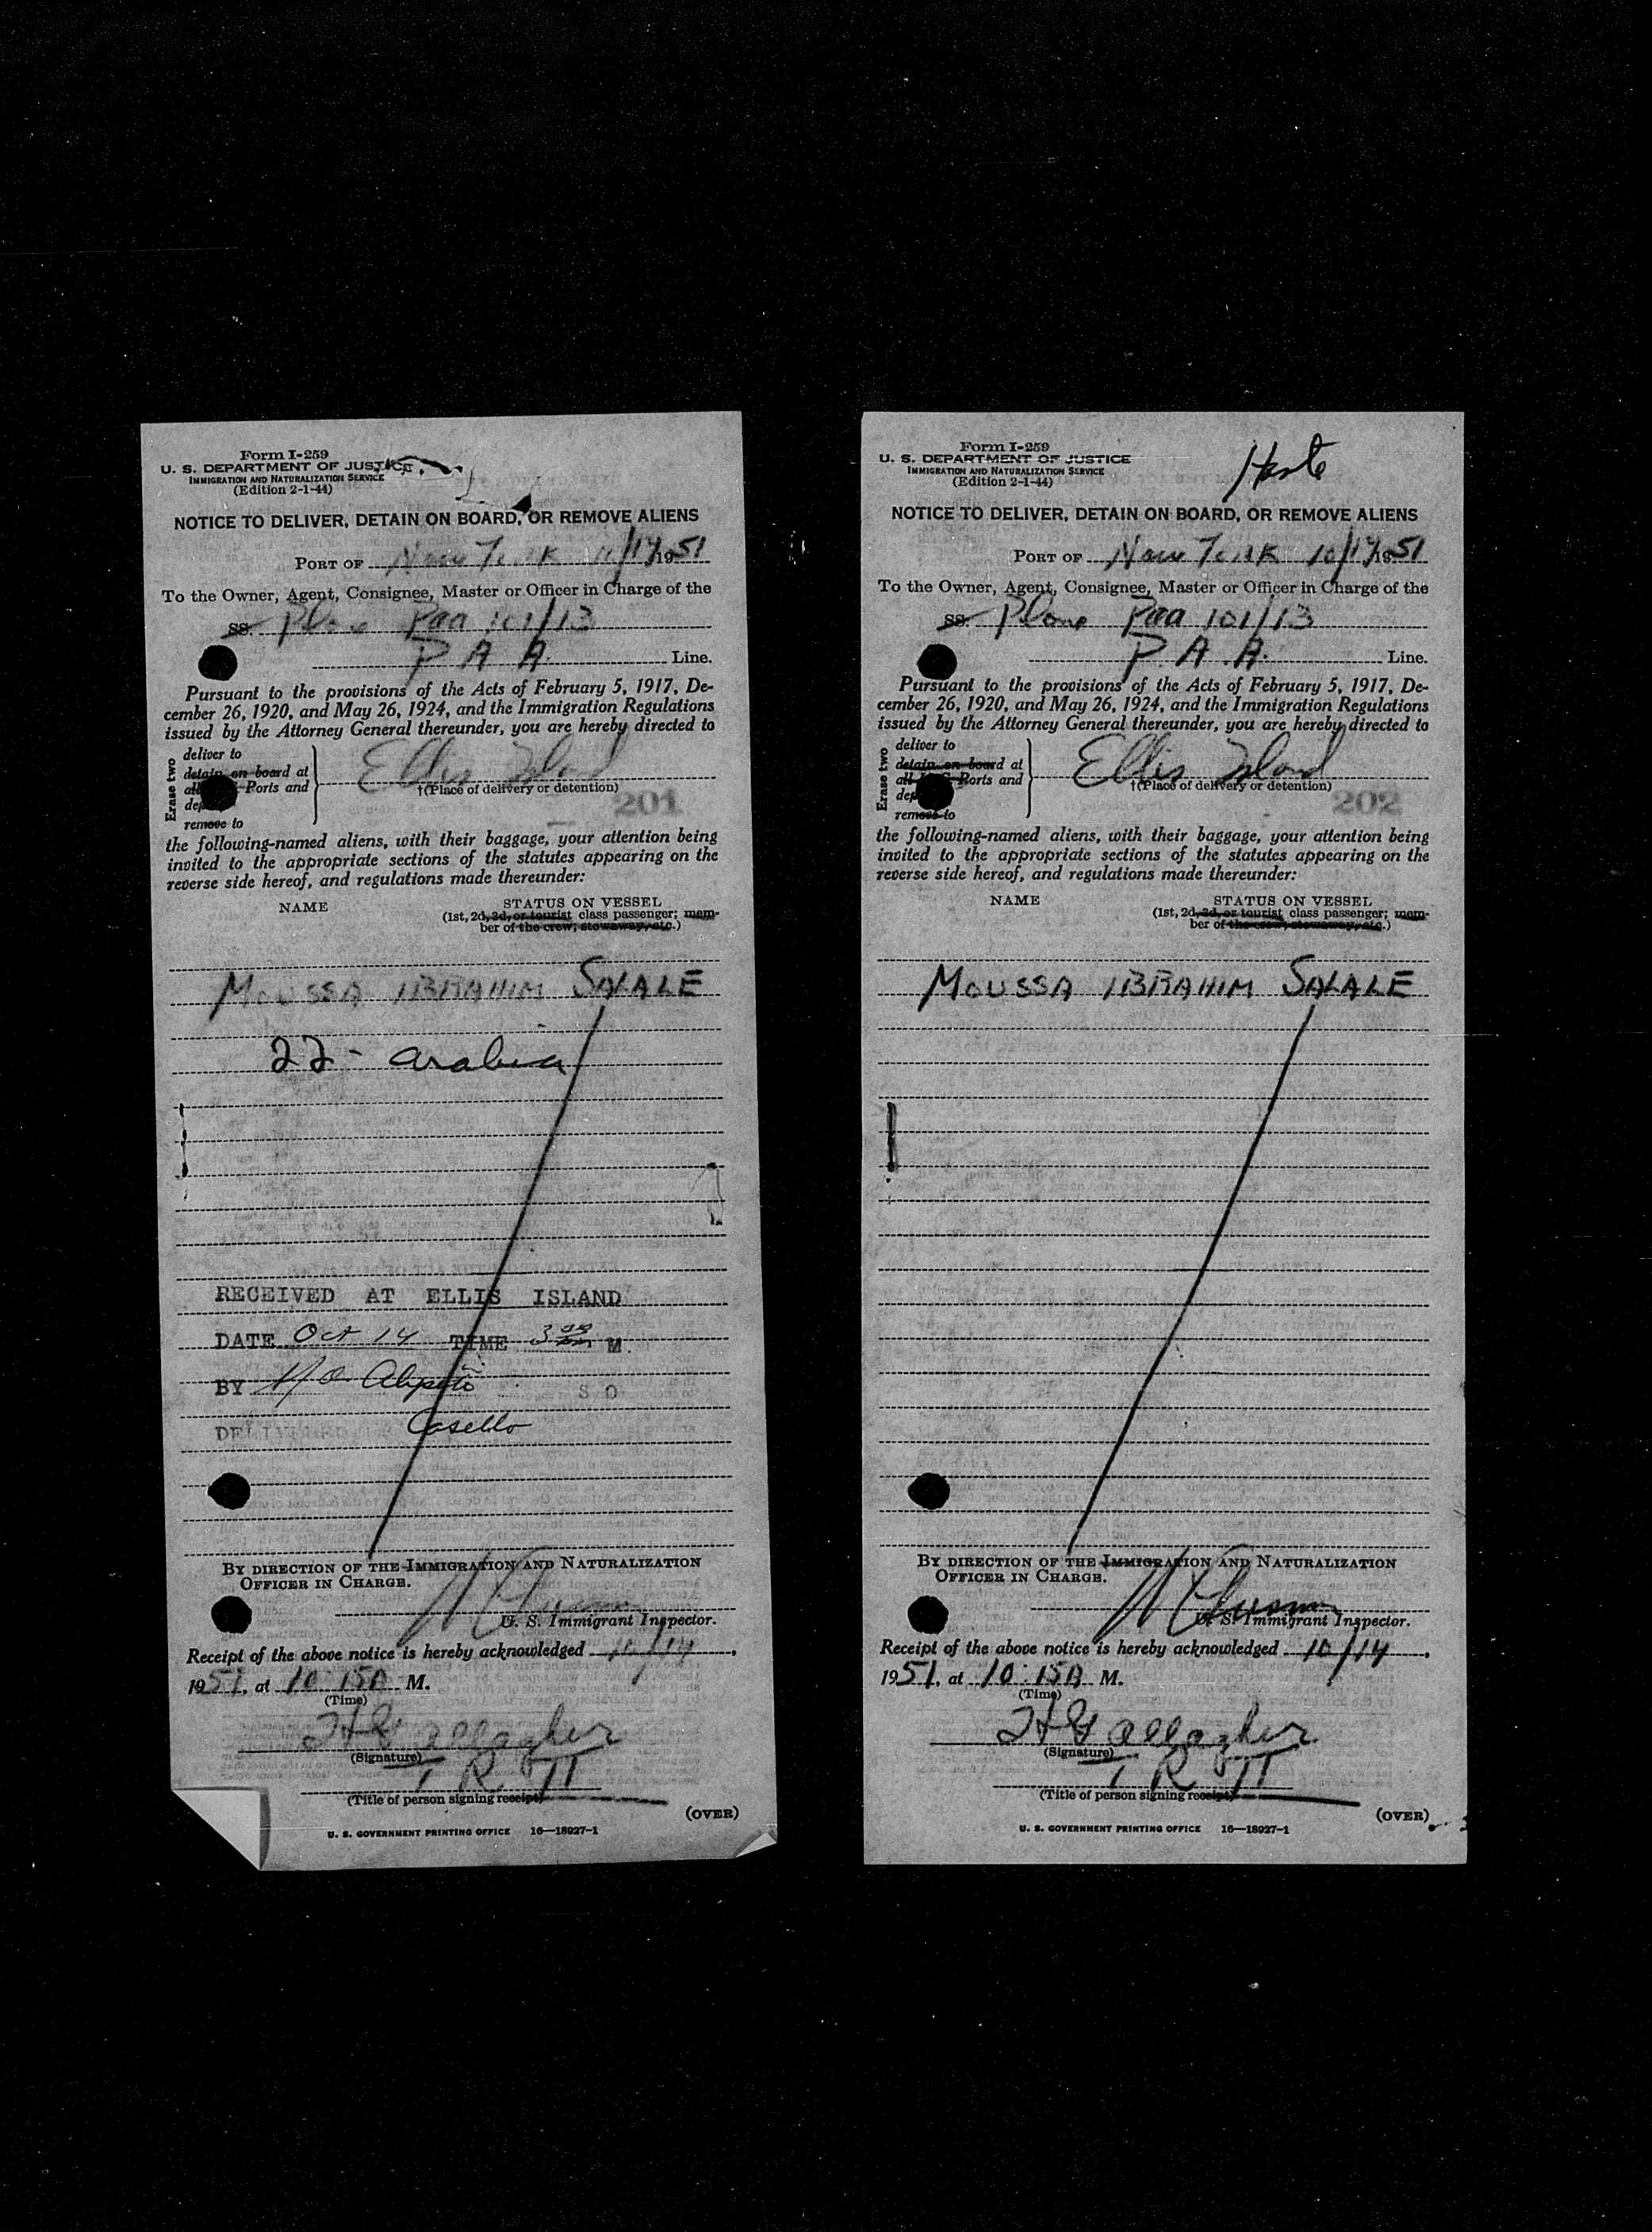 Form I-259
U. S. DEPARTMENT OF JUSTICE
IMMIGRATION AND NATURALIZATION SERVICE
(Edition 2-1-44)
NOTICE TO DELIVER, DETAIN ON BOARD, OR REMOVE ALIENS
PORT OF New York 10/14 1951
To the Owner, Agent, Consignee, Master or Officer in Charge of the
SS. Plane Paa 101/13
P A A. Line.
Pursuant to the provisions of the Acts of February 5, 1917, De-
cember 26, 1920, and May 26, 1924, and the Immigration Regulations
issued by the Attorney General thereunder, you are hereby directed to
Erase two
deliver to
detain on board at
all Ports and
remove to
Ellis Island
†(Place of delivery or detention)
201
the following-named aliens, with their baggage, your attention being
invited to the appropriate sections of the statutes appearing on the
reverse side hereof, and regulations made thereunder:
NAME STATUS ON VESSEL
(1st, 2d, 3d, or tourist class passenger; mem-
ber of the crew; stowaway, etc.)
MOUSSA IBRAHIM SALALE
22 - arabia
RECEIVED AT ELLIS ISLAND
DATE Oct 14 TIME 3 00 M.
BY S O
DELIVERED Casello
BY DIRECTION OF THE IMMIGRATION AND NATURALIZATION
OFFICER IN CHARGE.
U. S. Immigrant Inspector.
Receipt of the above notice is hereby acknowledged 10/14,
1951, at 10:15A M.
(Time)
H Gallagher
(Signature)
(Title of person signing receipt)
(OVER)
U. S. GOVERNMENT PRINTING OFFICE 16—18027-1
Form I-259
U. S. DEPARTMENT OF JUSTICE
IMMIGRATION AND NATURALIZATION SERVICE
(Edition 2-1-44)
NOTICE TO DELIVER, DETAIN ON BOARD, OR REMOVE ALIENS
PORT OF New York 10/14 1951
To the Owner, Agent, Consignee, Master or Officer in Charge of the
SS. Plane Paa 101/13
P. A. A. Line.
Pursuant to the provisions of the Acts of February 5, 1917, De-
cember 26, 1920, and May 26, 1924, and the Immigration Regulations
issued by the Attorney General thereunder, you are hereby directed to
Erase two
deliver to
detain on board at
all Ports and
remove to
Ellis Island
†(Place of delivery or detention)
202
the following-named aliens, with their baggage, your attention being
invited to the appropriate sections of the statutes appearing on the
reverse side hereof, and regulations made thereunder:
NAME STATUS ON VESSEL
(1st, 2d, 3d, or tourist class passenger; mem-
ber of the crew; stowaway, etc.)
MOUSSA IBRAHIM SALALE
BY DIRECTION OF THE IMMIGRATION AND NATURALIZATION
OFFICER IN CHARGE.
U. S. Immigrant Inspector.
Receipt of the above notice is hereby acknowledged 10/14,
1951, at 10:15A M.
(Time)
H Gallagher
(Signature)
(Title of person signing receipt)
(OVER)
U. S. GOVERNMENT PRINTING OFFICE 16—18027-1